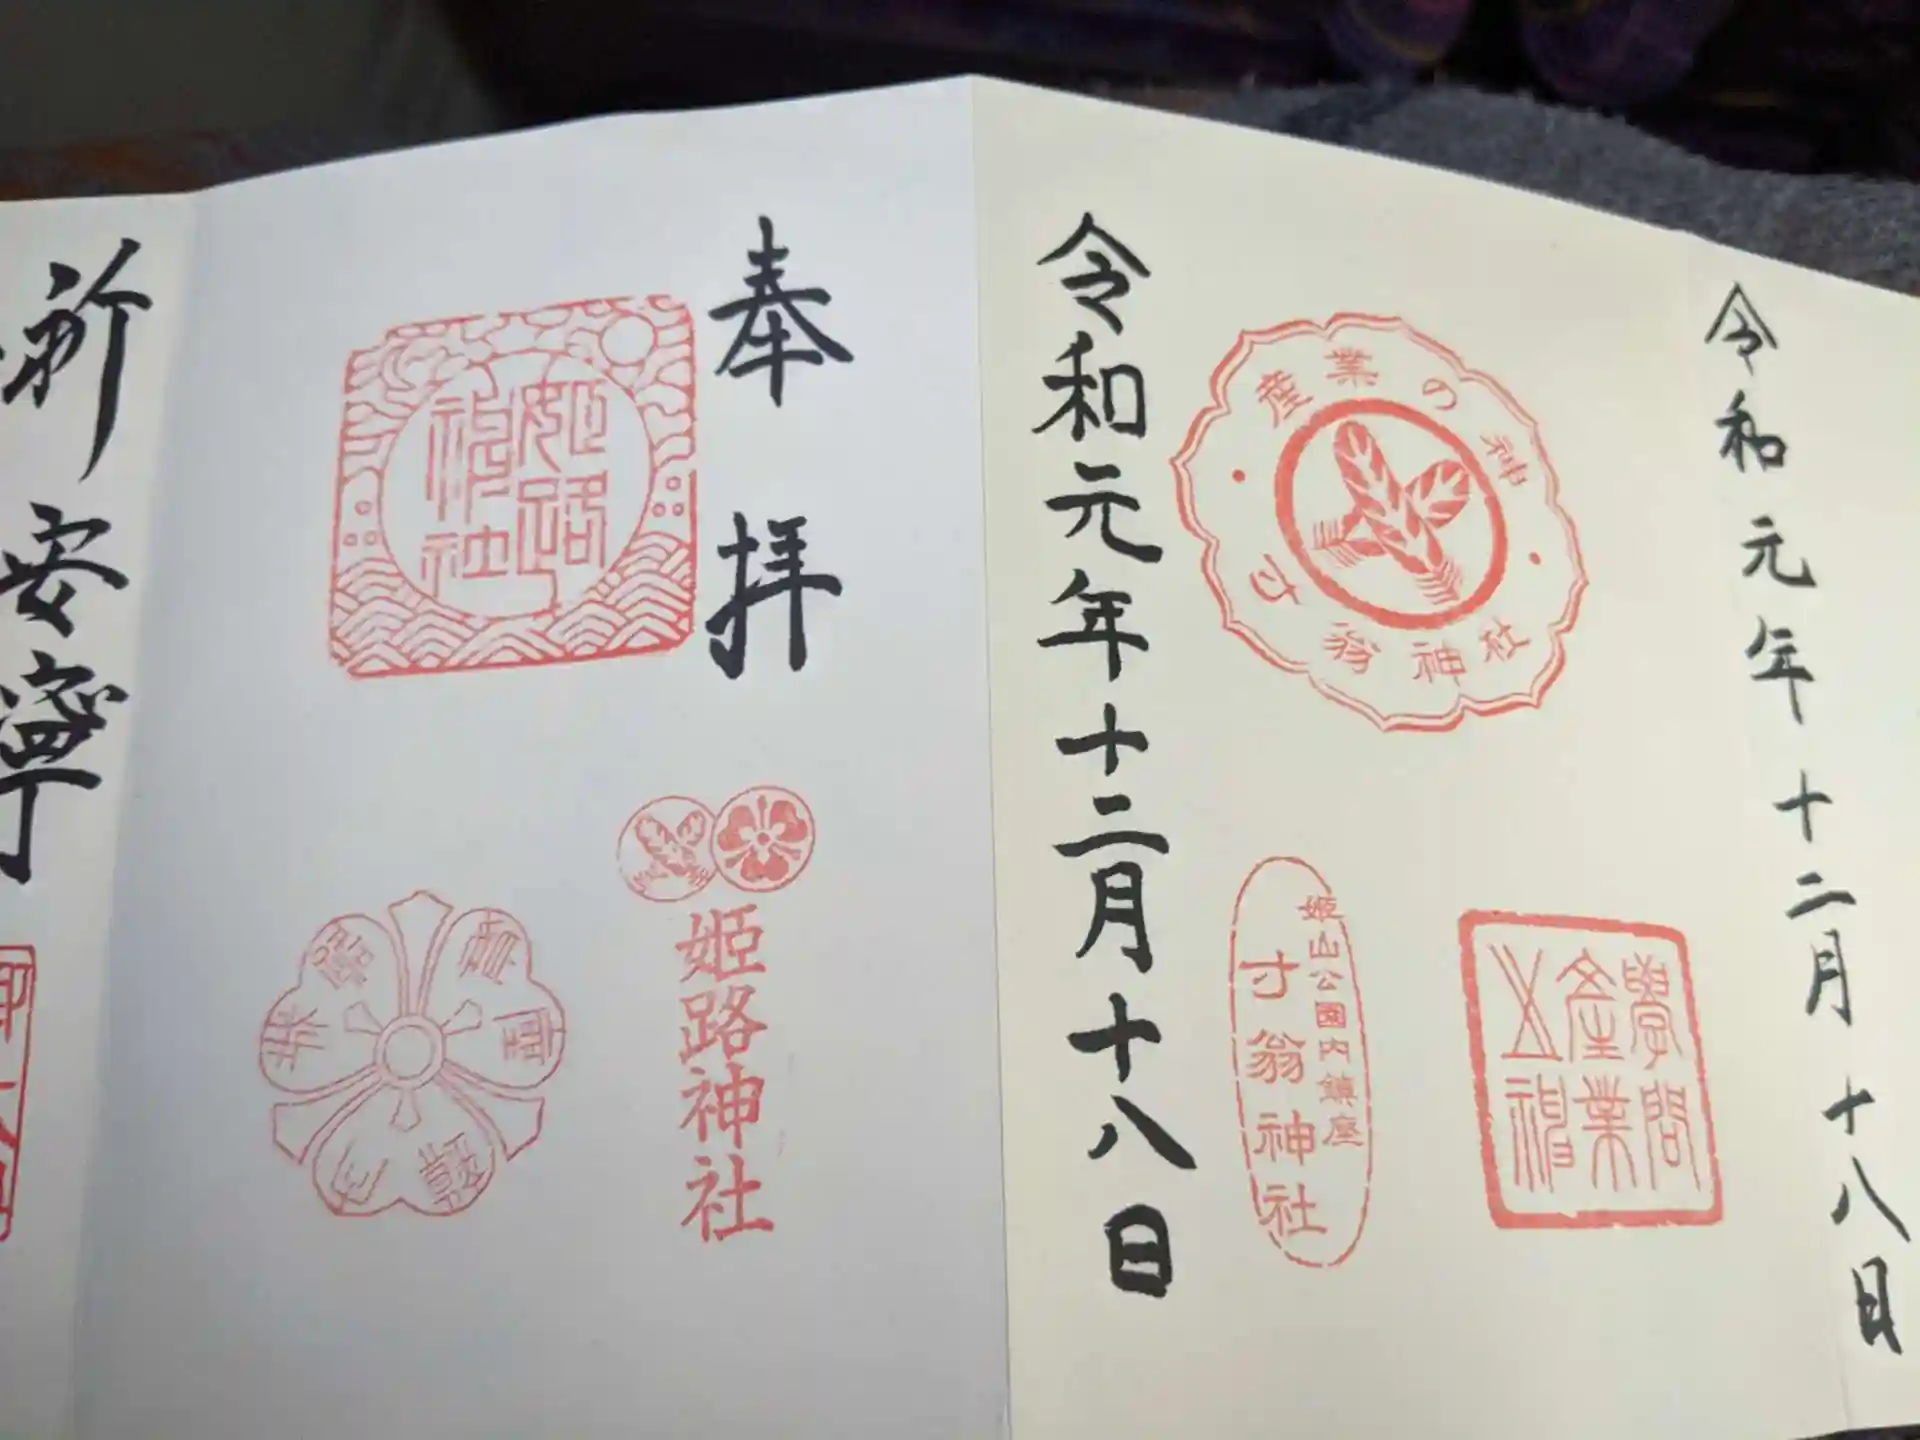 令和元年十二月十八日
産業の神
寸翁神社
學問
産業
之神
姫山公園内鎮座
寸翁神社
令和元年十二月十八日
奉拝
姫路
神社
姫路神社
祈安寧